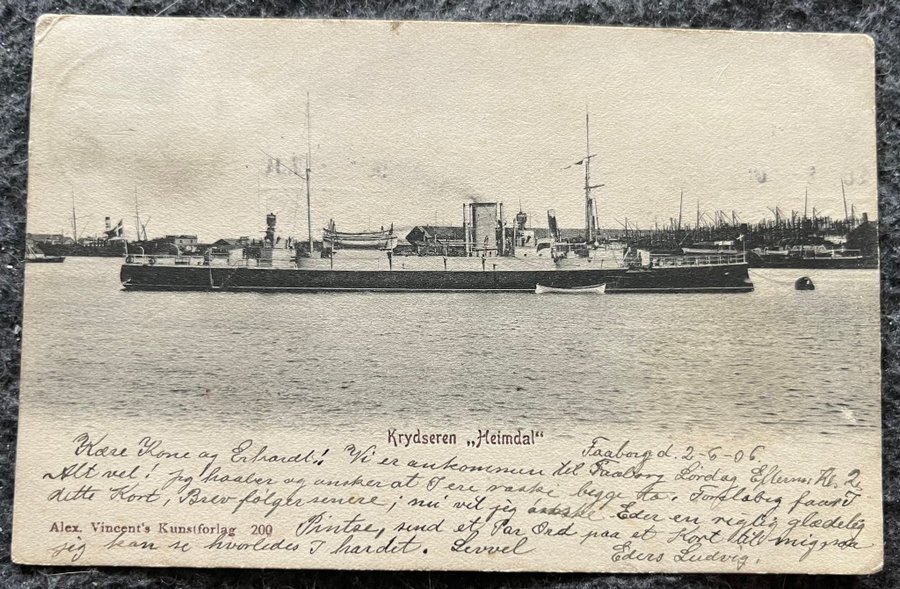 Krydseren „Heimdal"
Faaborg d. 2-6-06.
Kære Kone og Erhardt! Vi er ankommen til Faaborg Lørdag Efterm. Kl. 2.
Alt vel! jeg haaber og ønsker at I ere raske begge to. Foreløbig faar I
dette Kort, Brev følger senere; nu vil jeg ønske Eder en rigtig glædelig
Alex. Vincent's Kunstforlag 200
Pintse, send et Par Ord paa et Kort til mig, saa
jeg kan se hvorledes I har det. Levvel
Eders Ludvig.